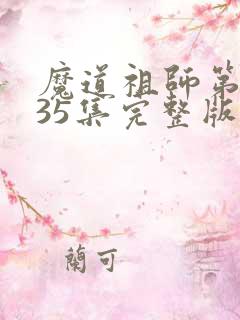 魔道祖師第
35集完整版
蘭可